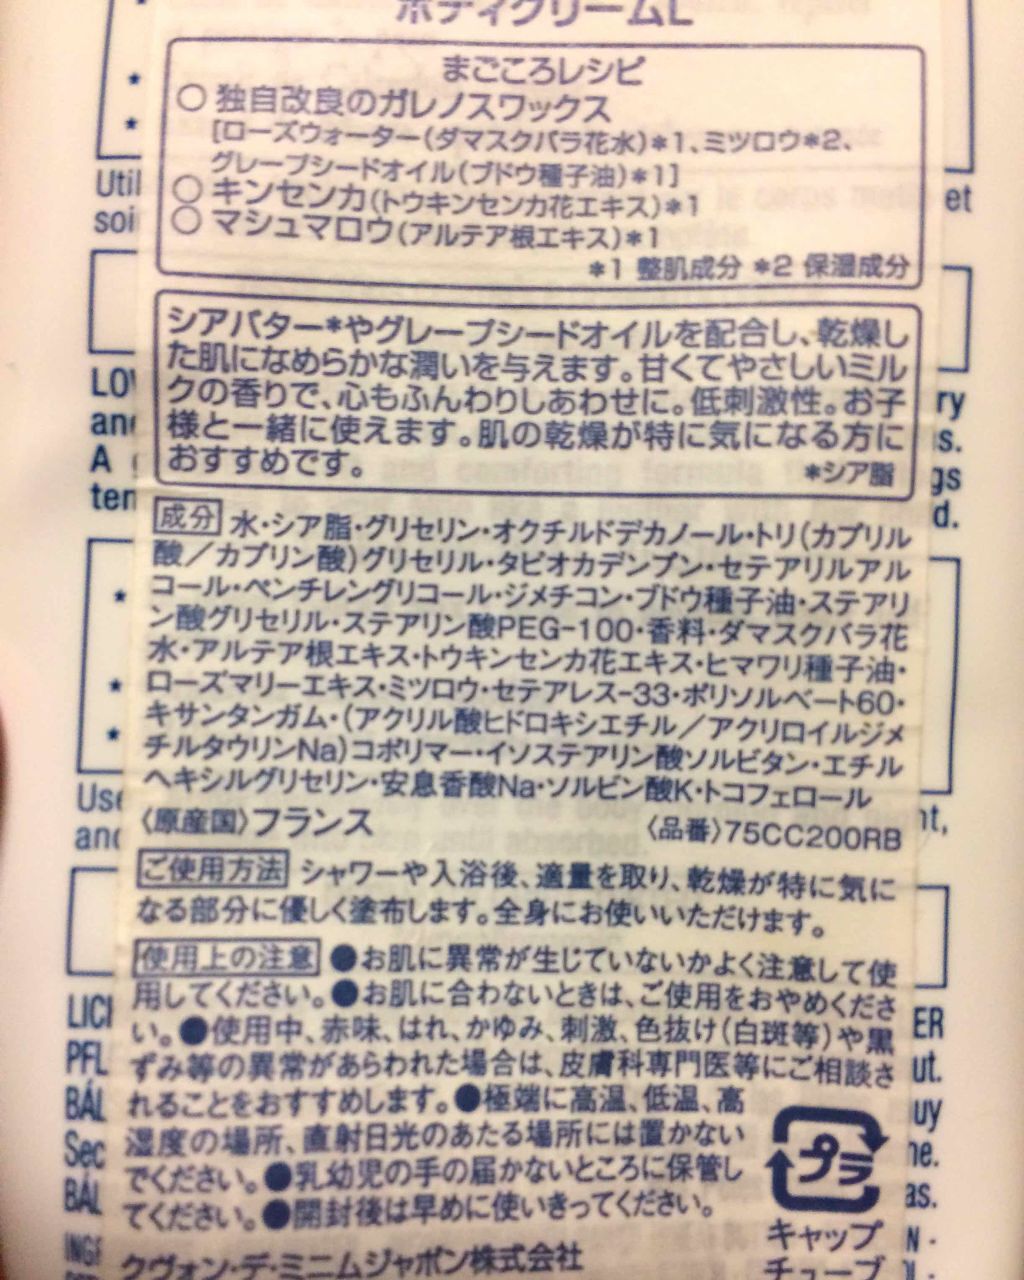 ボディクリームL
まごころレシピ
○ 独自改良のガレノスワックス
[ローズウォーター(ダマスクバラ花水)*1、ミツロウ*2、
グレープシードオイル(ブドウ種子油)*1]
○ キンセンカ(トウキンセンカ花エキス)*1
○ マシュマロウ(アルテア根エキス)*1
*1 整肌成分 *2 保湿成分
シアバター*やグレープシードオイルを配合し、乾燥し
た肌になめらかな潤いを与えます。甘くてやさしいミル
クの香りで、心もふんわりしあわせに。低刺激性。お子
様と一緒に使えます。肌の乾燥が特に気になる方に
おすすめです。 *シア脂
成分 水・シア脂・グリセリン・オクチルドデカノール・トリ(カプリル
酸/カプリン酸)グリセリル・タピオカデンプン・セテアリルアル
コール・ペンチレングリコール・ジメチコン・ブドウ種子油・ステアリ
ン酸グリセリル・ステアリン酸PEG-100・香料・ダマスクバラ花
水・アルテア根エキス・トウキンセンカ花エキス・ヒマワリ種子油・
ローズマリーエキス・ミツロウ・セテアレス-33・ポリソルベート60・
キサンタンガム・(アクリル酸ヒドロキシエチル/アクリロイルジメ
チルタウリンNa)コポリマー・イソステアリン酸ソルビタン・エチル
ヘキシルグリセリン・安息香酸Na・ソルビン酸K・トコフェロール
〈原産国〉フランス 〈品番〉75CC200RB
ご使用方法 シャワーや入浴後、適量を取り、乾燥が特に気に
なる部分に優しく塗布します。全身にお使いいただけます。
使用上の注意 ●お肌に異常が生じていないかよく注意して使
用してください。●お肌に合わないときは、ご使用をおやめくださ
い。●使用中、赤味、はれ、かゆみ、刺激、色抜け(白斑等)や黒
ずみ等の異常があらわれた場合は、皮膚科専門医等にご相談さ
れることをおすすめします。●極端に高温、低温、高
湿度の場所、直射日光のあたる場所には置かない
でください。●乳幼児の手の届かないところに保管し
てください。●開封後は早めに使いきってください。
クヴォン・デ・ミニムジャポン株式会社
プラ
キャップ
チューブ